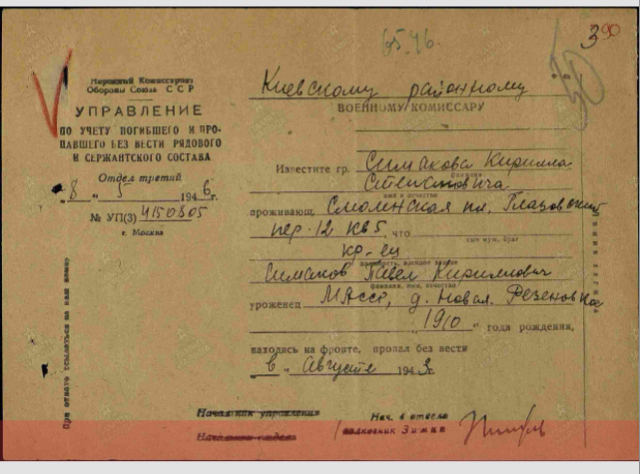 390
65.46.
50
Народный Комиссариат
Обороны Союза ССР
УПРАВЛЕНИЕ
ПО УЧЕТУ ПОГИБШЕГО И ПРО-
ПАВШЕГО БЕЗ ВЕСТИ РЯДОВОГО
И СЕРЖАНТСКОГО СОСТАВА
Отдел третий
"8" 5 1946г.
№ УП(3) 4150805
г. Москва
При ответе ссылаться на наш номер
Киевскому районному
ВОЕННОМУ КОМИССАРУ
Известите гр. Симакова Кирилла
фамилия
Степановича
имя и отчество
проживающ. Смоленская пл.
пер. 12 кв 5, что
сын муж, брат
кр-ец
Симаков Павел Кириллович
фамилия, имя, отчество
уроженец МАССР, д. Новая.
"1910" года рождения,
находясь на фронте, пропал без вести
в "Августе 1943г.
Начальник управления
Нач. 6 отдела
Начальник отдела
полковник